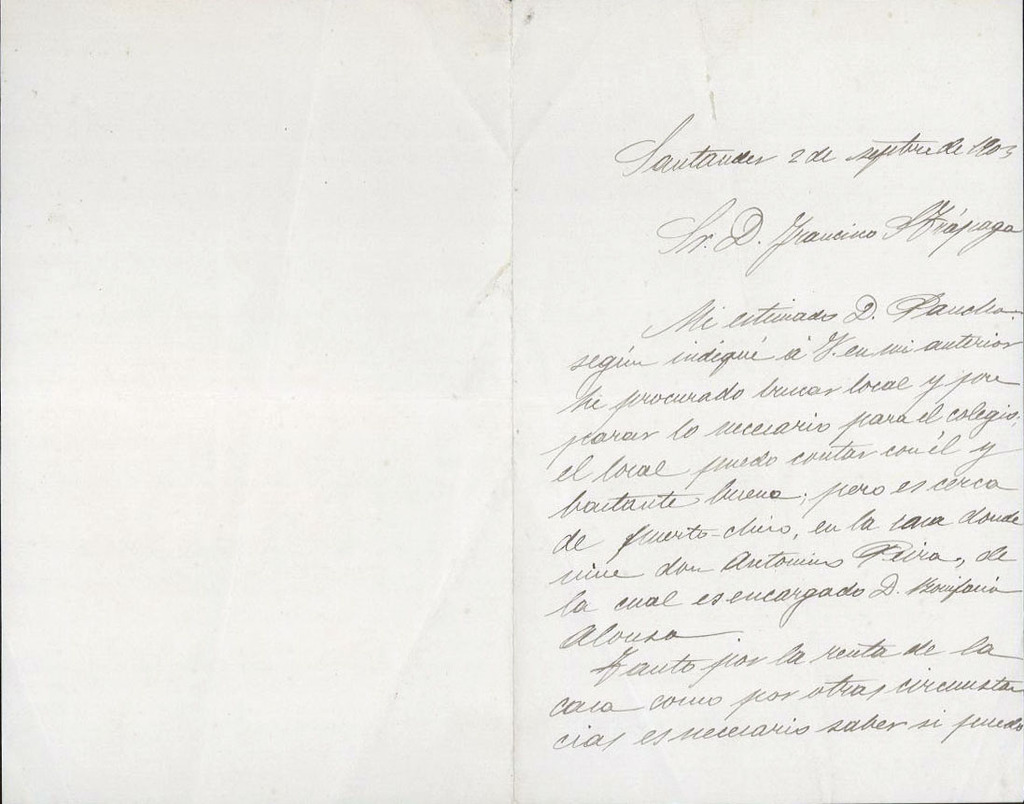 Santander 2 de septbre de 1903
Sr. D. Francisco S Trápaga
Mi estimado D. Pancho:
según indiqué á V. en mi anterior
he procurado buscar local y pre
parar lo necesario para el colegio;
el local puedo contar con él y
bastante bueno; pero es cerca
de puerto-chico, en la casa donde
vive don Antonino Peira, de
la cual es encargado D. Bonifacio
Alonso
Tanto por la renta de la
casa como por otras circunstan
cias es necesario saber si puedo